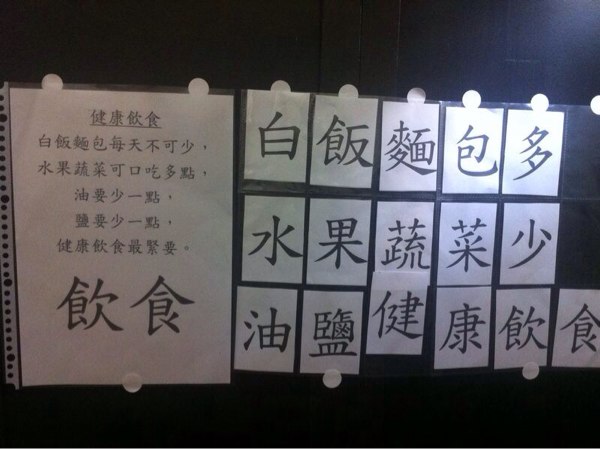 健康飲食
白飯麵包每天不可少，
水果蔬菜可口吃多點，
油要少一點，
鹽要少一點，
健康飲食最緊要。
飲食
白飯麵包多
水果蔬菜少
油鹽健康飲食